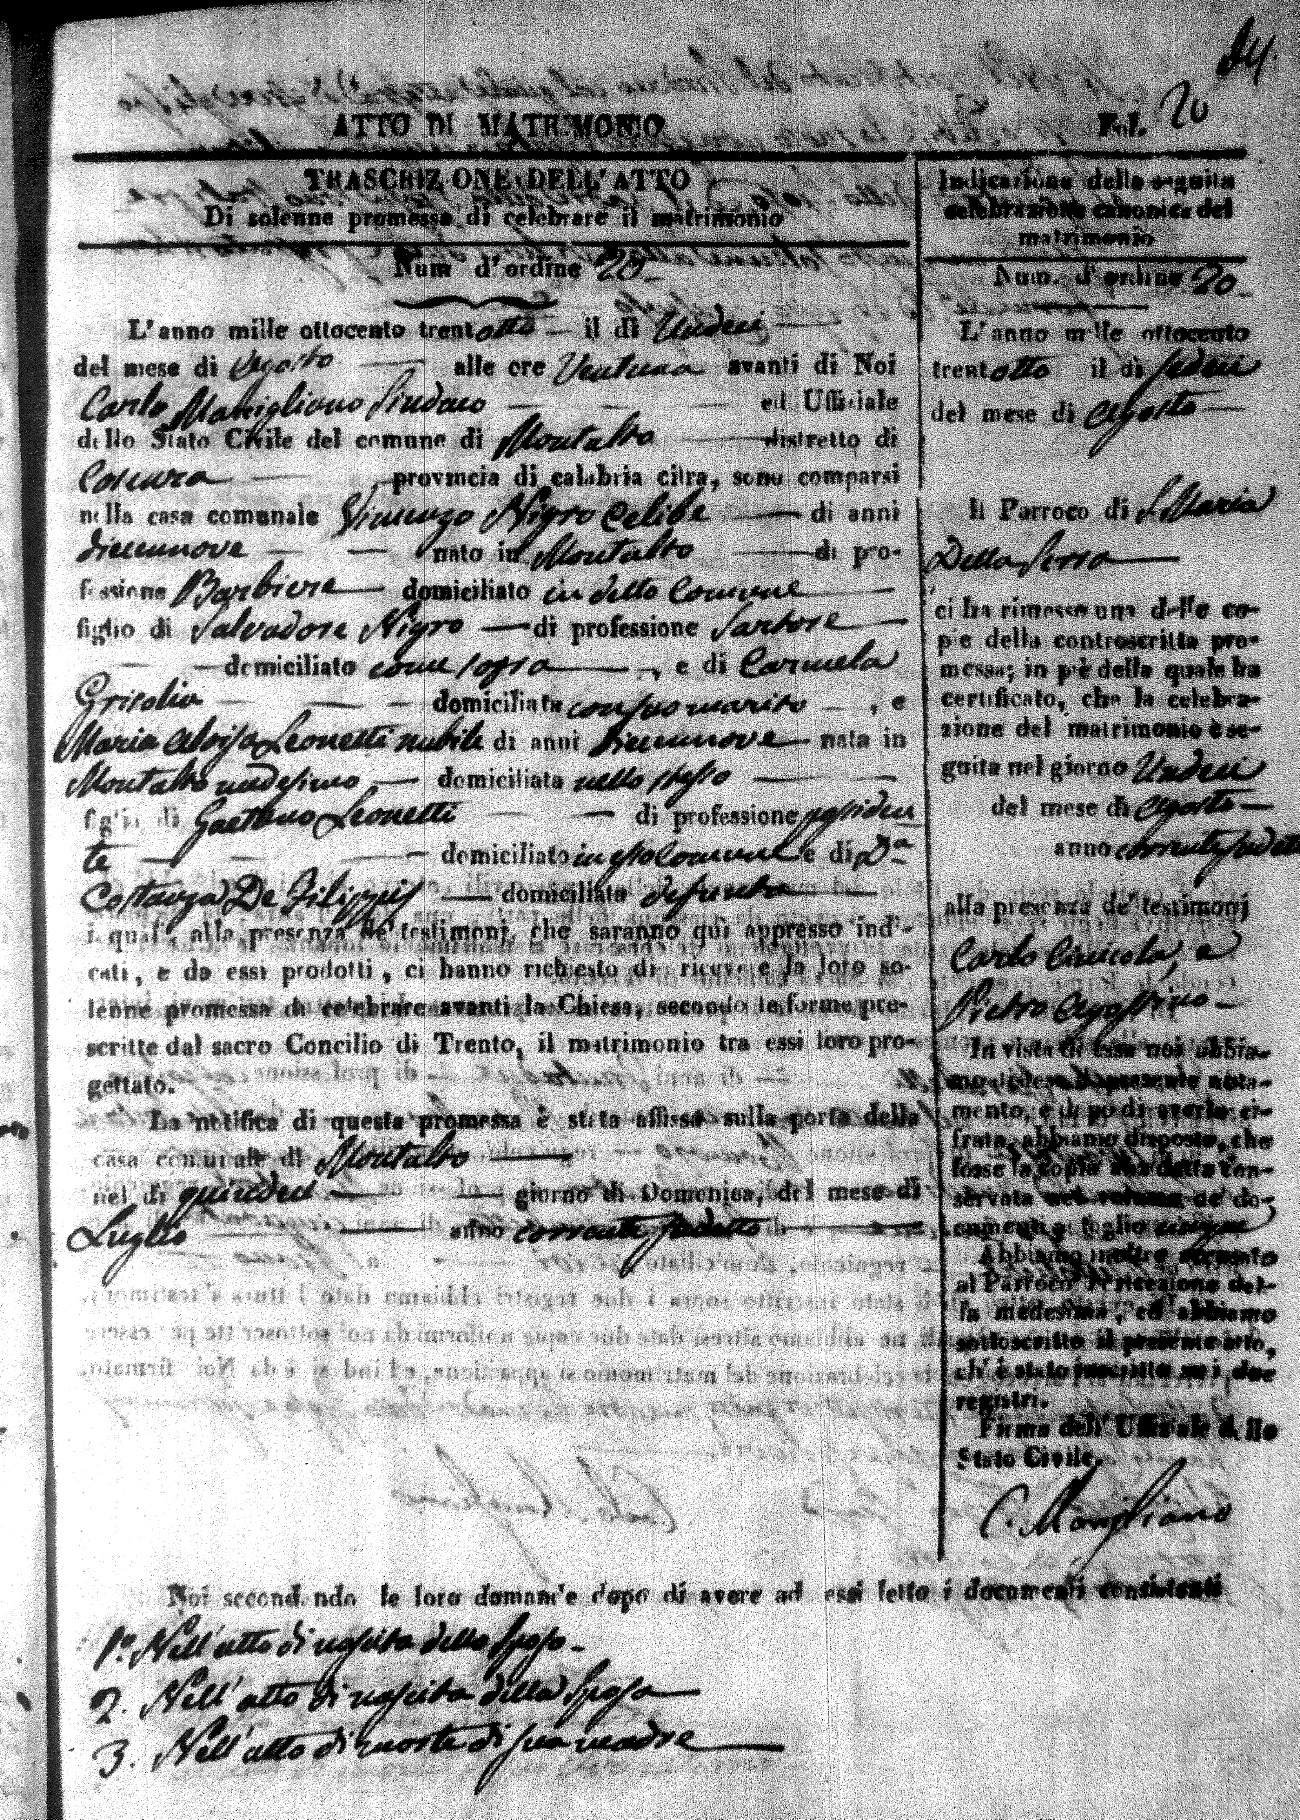 ATTO DI MATRIMONIO
Fol. 20
TRASCRIZIONE DELL'ATTO
Di solenne promessa di celebrare il matrimonio
Num d'ordine 20
L'anno mille ottocento trentotto il dì Undeci
del mese di Agosto alle ore Ventuna avanti di Noi
Carlo Mangliano Sindaco ed Ufficiale
dello Stato Civile del comune di Montalto distretto di
Cosenza provincia di calabria citra, sono comparsi
nella casa comunale Vincenzo Nigro Celibe di anni
diecinnove nato in Montalto di pro-
fessione Barbiere domiciliato in detto Comune
figlio di Salvadore Nigro di professione Sartore
domiciliato come sopra, e di Carmela
Grisolia domiciliata con suo marito, e
Maria Aloisa Leonetti nubile di anni diecinnove nata in
Montalto medesimo domiciliata nello stesso
figlia di Gaetano Leonetti di professione possiden
te domiciliato in esso Comune e di Da
Costanza De Filippis domiciliata defunta
i quali, alla presenza de' testimonj, che saranno qui appresso indi-
cati, e da essi prodotti, ci hanno richiesto di ricevere la loro so-
lenne promessa di celebrare avanti la Chiesa, secondo le forme pre-
scritte dal sacro Concilio di Trento, il matrimonio tra essi loro pro-
gettato.
La notifica di questa promessa è stata affissa sulla porta della
casa comunale di Montalto
nel dì quindeci giorno di Domenica, del mese di
Luglio anno corrente sudetto
Indicazione della seguita
celebrazione canonica del
matrimonio
Num. d'ordine 20
L'anno mille ottocento
trentotto il dì sedeci
del mese di Agosto
Il Parroco di S. Maria
Della Serra
ci ha rimessa una delle co-
pie della controscritta pro-
messa; in piè della quale ha
certificato, che la celebra-
zione del matrimonio è se-
guita nel giorno Undeci
del mese di Agosto
anno corrente sudetto
alla presenza de' testimonj
Carlo e
Pietro Agostino
In vista di essa noi abbia-
mo disteso il presente nota-
mento, e dopo di averla ci-
frata, abbiamo disposto, che
fosse la copia sudetta con-
servata nel volume de' do-
cumenti a foglio cinque
Abbiamo inoltre accusato
al Parroco la ricezione del-
la medesima, ed abbiamo
sottoscritto il presente atto,
ch'è stato inscritto su i due
registri.
Firma dell'Uffiziale dello
Stato Civile.
C. Mangliano
Noi secondando le loro domande dopo di avere ad essi letto i documenti consistenti
1.° Nell'atto di nascita dello Sposo
2. Nell'atto di nascita della Sposa
3. Nell'atto di morte di sua madre